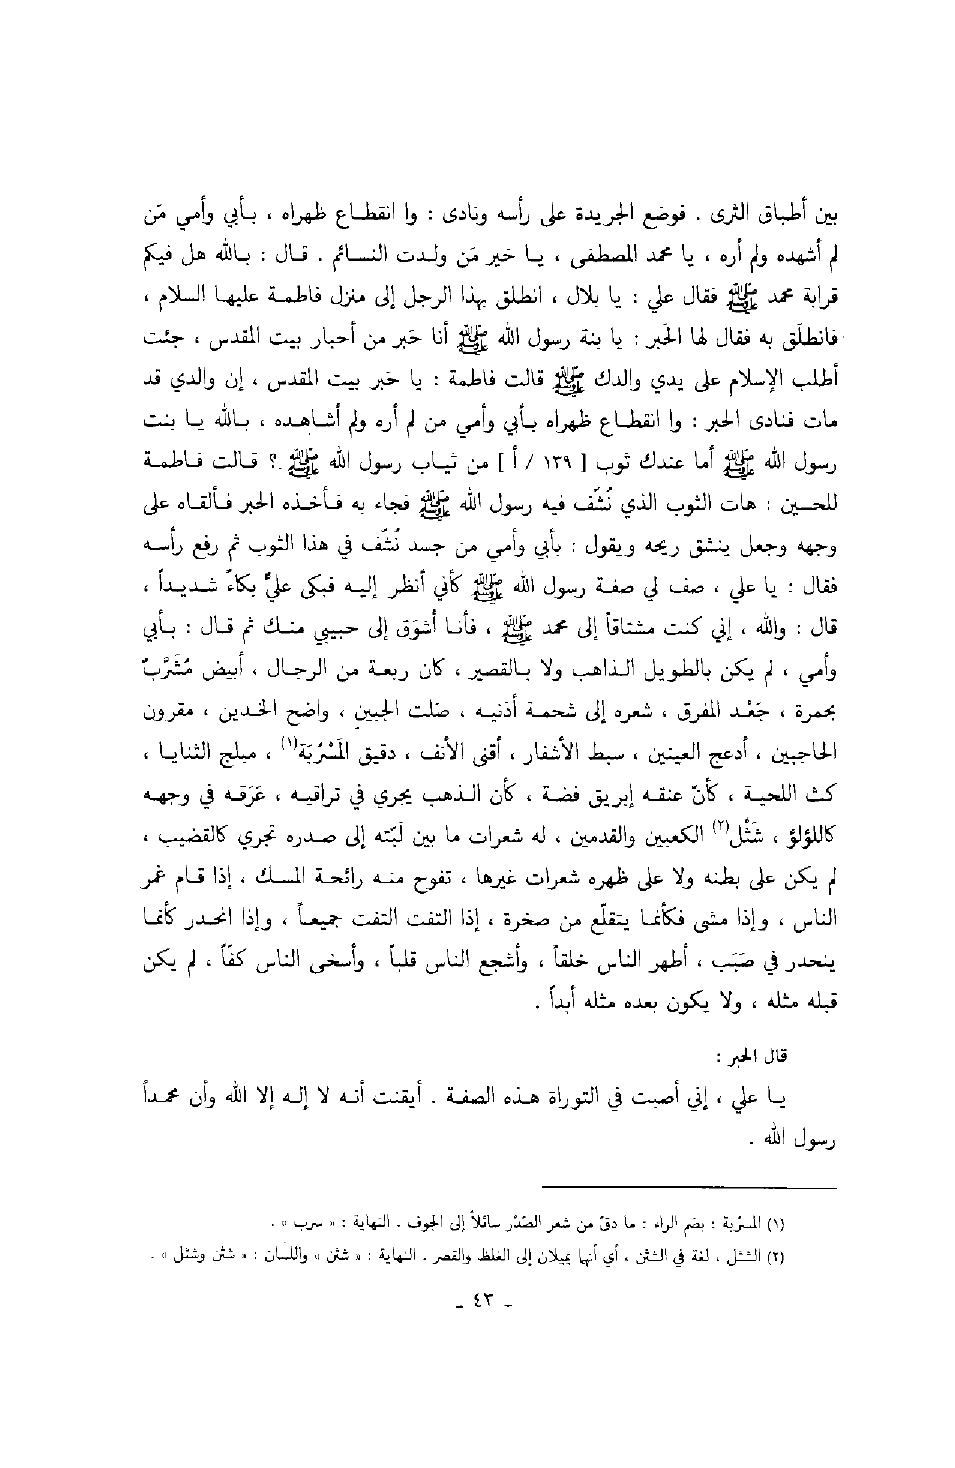 بين أطباق الثرى . فوضع الجريدة على رأسه ونادى : وا انقطاع ظهراه ، بأبي وأمي مَن
لم أشهده ولم أره ، يا محمد المصطفى ، يا خير مَن ولدت النسائم . قال : بالله هل فيكم
قرابة محمد ﷺ فقال علي : يا بلال ، انطلق بهذا الرجل إلى منزل فاطمة عليها السلام ،
فانطلَق به فقال لها الحَبر : يا بنة رسول الله ﷺ أنا حَبر من أحبار بيت المقدس ، جئت
أطلب الإسلام على يدي والدك ﷺ قالت فاطمة : يا حَبر بيت المقدس ، إن والدي قد
مات فنادى الحبر : وا انقطاع ظهراه بأبي وأمي من لم أره ولم أشاهده ، بالله يا بنت
رسول الله ﷺ أما عندك ثوب [ ١٣٩ / أ ] من ثياب رسول الله ﷺ .؟ قالت فاطمة
للحسين : هات الثوب الذي نُشِّف فيه رسول الله ﷺ فجاء به فأخذه الحبر فألقاه على
وجهه وجعل ينشق ريحه ويقول : بأبي وأمي من جسد نُشِّف في هذا الثوب ثم رفع رأسه
فقال : يا علي ، صف لي صفة رسول الله ﷺ كأني أنظر إليه فبكى عليٌّ بكاءً شديداً ،
قال : والله ، إني كنت مشتاقاً إلى محمد ﷺ ، فأنا أشوَق إلى حبيبي منك ثم قال : بأبي
وأمي ، لم يكن بالطويل الذاهب ولا بالقصير ، كان ربعة من الرجال ، أبيض مُشَرَّبٌ
بحمرة ، جَعْد المفرق ، شعره إلى شحمة أذنيه ، صَلت الجبين ، واضح الخدين ، مقرون
الحاجبين ، أدعج العينين ، سبط الأشفار ، أقنى الأنف ، دقيق المَسْرُبَة(١) ، مبلج الثنايا ،
كث اللحية ، كأنّ عنقه إبريق فضة ، كأن الذهب يجري في تراقيه ، عَرَقه في وجهه
كاللؤلؤ ، شَثْل(٢) الكعبين والقدمين ، له شعرات ما بين لَبَّته إلى صدره تجري كالقضيب ،
لم يكن على بطنه ولا على ظهره شعرات غيرها ، تفوح منه رائحة المسك ، إذا قام غمر
الناس ، وإذا مشى فكأنما يتقلّع من صخرة ، إذا التفت التفت جميعاً ، وإذا انحدر كأنما
ينحدر في صَبَب ، أطهر الناس خلقاً ، وأشجع الناس قلباً ، وأسخى الناس كفّاً ، لم يكن
قبله مثله ، ولا يكون بعده مثله أبداً .
قال الحبر :
يا علي ، إني أصبت في التوراة هذه الصفة . أيقنت أنه لا إله إلا الله وأن محمداً
رسول الله .
(١) المسرُبة : بضم الراء : ما دقّ من شعر الصَّدْر سائلاً إلى الجوف . النهاية : « سرب » .
(٢) الشثل ، لغة في الشثن ، أي أنها يميلان إلى الغلظ والقصر . النهاية : « شثن » واللسان : « شثن وشثل » .
ـ ٤٣ ـ